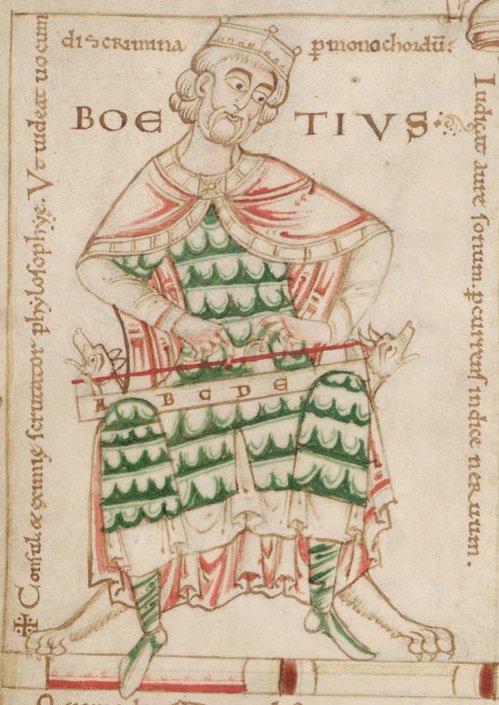 ✠ Consul. & eximię scrutator phylosophyę. Vt uideat uocum
discrimina ꝑ monochordū:
BOE TIVS
Iudicat aure sonum. ꝑcurrens indice neruum.
A B C D E